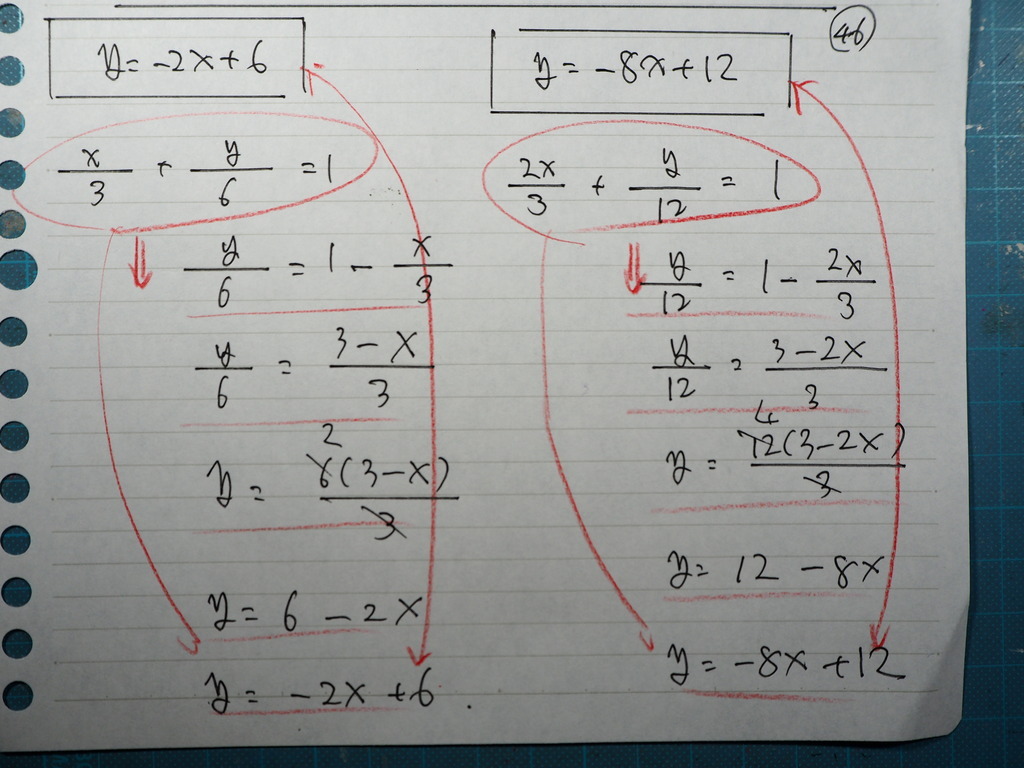 46
y = -2x + 6
x/3 + y/6 = 1
y/6 = 1 - x/3
y/6 = 3 - x/3
2
y = 6(3 - x)/3
y = 6 - 2x
y = -2x + 6.
y = -8x + 12
2x/3 + y/12 = 1
y/12 = 1 - 2x/3
y/12 = 3 - 2x/3
4
y = 12(3 - 2x)/3
y = 12 - 8x
y = -8x + 12